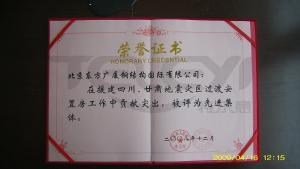 荣誉证书
HONORARY CREDENTIAL
北京东方广厦钢结构国际有限公司:
在援建四川、甘肃地震灾区过渡安
置房工作中贡献突出，被评为先进集
体。
二〇〇八年十二月
2009/04/16 12:15